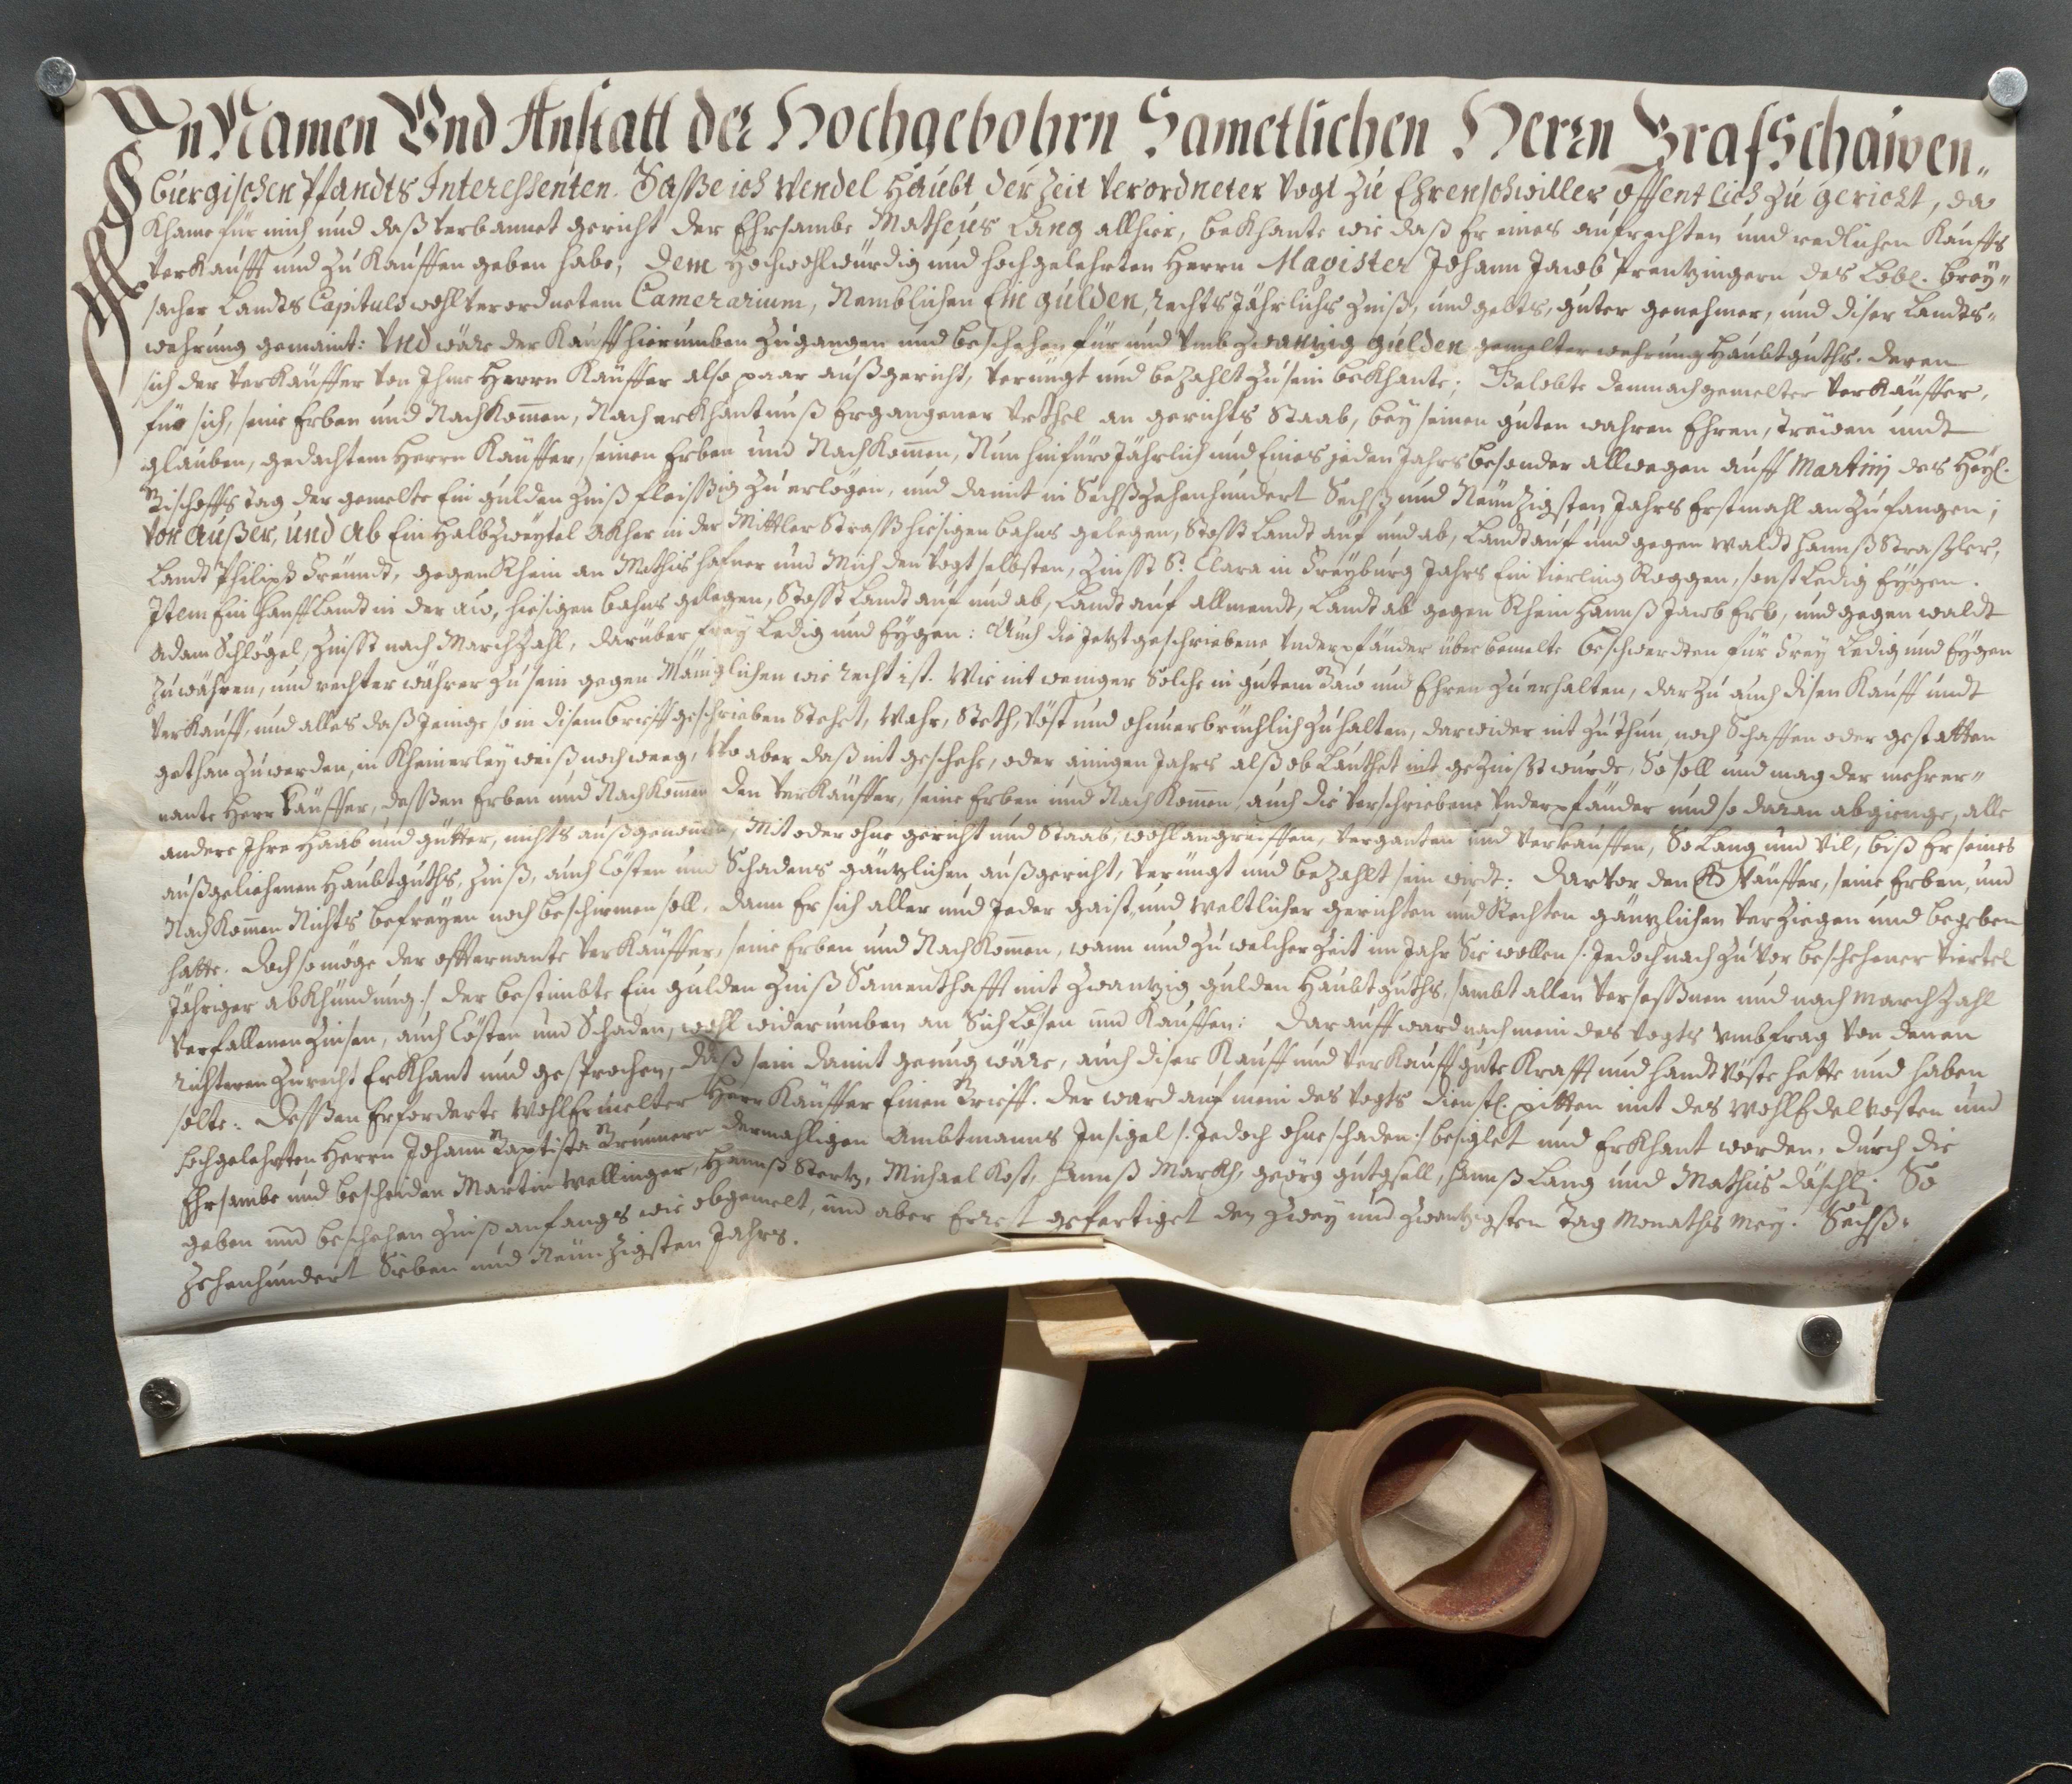 In Namen Und Anstatt der Hochgebohrn Sametlichen Herrn Graf Schawen„
burgischen Pfandts Interessenten. Saße ich Wendel Haubt der Zeit Verordneter Vogt zu Ehrenschwiller offentlich zu gericht, da
Khame für mich und daß Verbannet gericht der Ehrsambe Matheus Lang allhier, bekhante wie daß Er eines aufrechten und redlichen Kauffs
Verkaufft und zu Kauffen geben habe, dem Hochwohlwürdig und hochgelehrten Herrn Magister Johann Jacob Prentzingern des Lobl. Brey„
sacher Landts Capituls wohlverordnetem Camerarium, Namblichen Ein gulden, rechts Jährlichs Zinß, und gelts, guter genehmer, und diser Landts„
wehrung gemaint: Und wäre der Kauff hierumben zugangen und beschehen für und Umb zwantzig gulden gemelter wehrung Haubtguths. deren
sich der Verkäuffer von Ihme Herrn Käuffer also paar außgericht, Vernügt und bezahlt zu sein bekhante; Gelobte demnach gemelter Verkäuffer,
für sich, seine Erben und Nachkom̄en, Nach erkhantnuß Ergangener Urthel an gerichts Staab, bey seinen guten wahren Ehren, trewen undt
glauben, gedachtem Herrn Käuffer, seinen Erben und Nachkom̄en, Nun hinfüro Jährlich und Eines jeden Jahrs besonder allwegen auff Martinj des Heyl.
Bischoffs tag der gemelte Ein gulden Zinß fleissig zu erlegen, und damit in Sechßzehenhundert Sechß und Neünzigsten Jahrs Erstmahl anzufangen;
Vor Außer, und Ab Ein Halbzweytel Akher in der Mittler Straß hiesigen bahns gelegen, Stosst Landt auf und ab, Landt auf und gegen Waldt Hannß Straßler,
Landt Philipß Freündt, gegen Rhein an Mathis Hafner und Mich den Vogt selbsten, Zinsst St. Clara in Freyburg Jahrs Ein Vierling Roggen, sonst Ledig Eygen.
Item Ein Hanfflandt in der aw, hiesigen bahns gelegen, Stosst Landt auf und ab, Landt auf allmendt, Landt ab gegen Rhein Hannß Jacob Erb, und gegen Waldt
Adam Schlögel, Zinsst nach Marchzahl, darüber frey Ledig und Eygen: Auch die Jetzt geschriebene Underpfänder über bemelte beschwerdten für Frey Ledig und Eygen
zu währen, und rechter währer zu sein gegen Mäniglichen wie recht ist. Wie nit weniger Solche in gutem Baw und Ehren zu erhalten, darzu auch disen Kauff undt
Verkauff, und alles daß Jenige so in disem brieff geschrieben Stehet, Wahr, Steth, Vöst und ohnverbrüchlich zu halten, darwider nit zu thun, noch Schaffen oder gestatten
gethan zu werden, in Kheinerley weiß noch weeg, Wo aber daß nit geschehe, oder ainigen Jahrs alß ob Lauthet nit gezinsst wurde, So soll und mag der mehrer„
nante Herr Käuffer, dessen Erben und Nachkom̄en den Verkäuffer, seine Erben und Nachkom̄en auch die Verschriebene Underpfänder und so daran abgienge, alle
andere Ihre Haab und gütter, nichts außgenom̄en, Mit oder ohne gericht und Staab, wohl angreiffen, Verganten und Verkauffen, So Lang und Vil, biß Er seines
außgeliehenen Haubtguths, Zinß, auch Cösten und Schadens gäntzlichen außgericht, Vernügt und bezahlt sein wirdt: Darvor den Käuffer, seine Erben, und
Nachkom̄en Nichts befreyen noch beschirmen soll. Dann Er sich aller und Jeder gaist„ und Weltlicher gerichten und Rechten gäntzlichen Verziegen und begeben
hatte. Doch so möge der offternante Verkäuffer, seine Erben und Nachkom̄en, wann und zu welcher Zeit im Jahr Sie wollen /: Jedoch nach zuvor beschehener Viertel
Jähriger abkhündung:/ der bestimbte Ein gulden Zinß Samenthafft mit Zwantzig gulden Haubtguths, sambt allen Versessnen und nach Marchzahl
Verfallenen Zinsen, auch Cösten und Schaden, wohl widerumben an Sich Lösen und Kauffen: Darauff ward nach mein des Vogts Umbfrag Von denen
Richteren zu recht Erkhant und gesprochen, daß sein damit genug wäre, auch diser Kauff und Verkauff gute Krafft und Handtvöste hette und haben
solte. Dessen Erforderte Wohl Ermelter Herr Käuffer Einen Brieff. Der ward auf mein des Vogts dienstl. pitten mit des Wohl Edel Vösten und
Hochgelehrten Herrn Johann Baptista Brunnern dermahligen Ambtmanns Insigel /: Jedoch ohne schaden:/ besiglet und Erkhant worden, durch die
Ehrsambe und bescheiden Martin Wellinger, Hannß Stertz, Michael Kost, Hannß Markh, Geörg Gutgsell, Hannß Lang und Mathis Däschl. So
geben und beschehen Zinß anfangs wie obgemelt, und aber Erest gefertiget den Zwey und Zwantzigsten Tag Monaths Mey. Sechß„
Zehenhundert Sieben und Neünzigsten Jahrs.